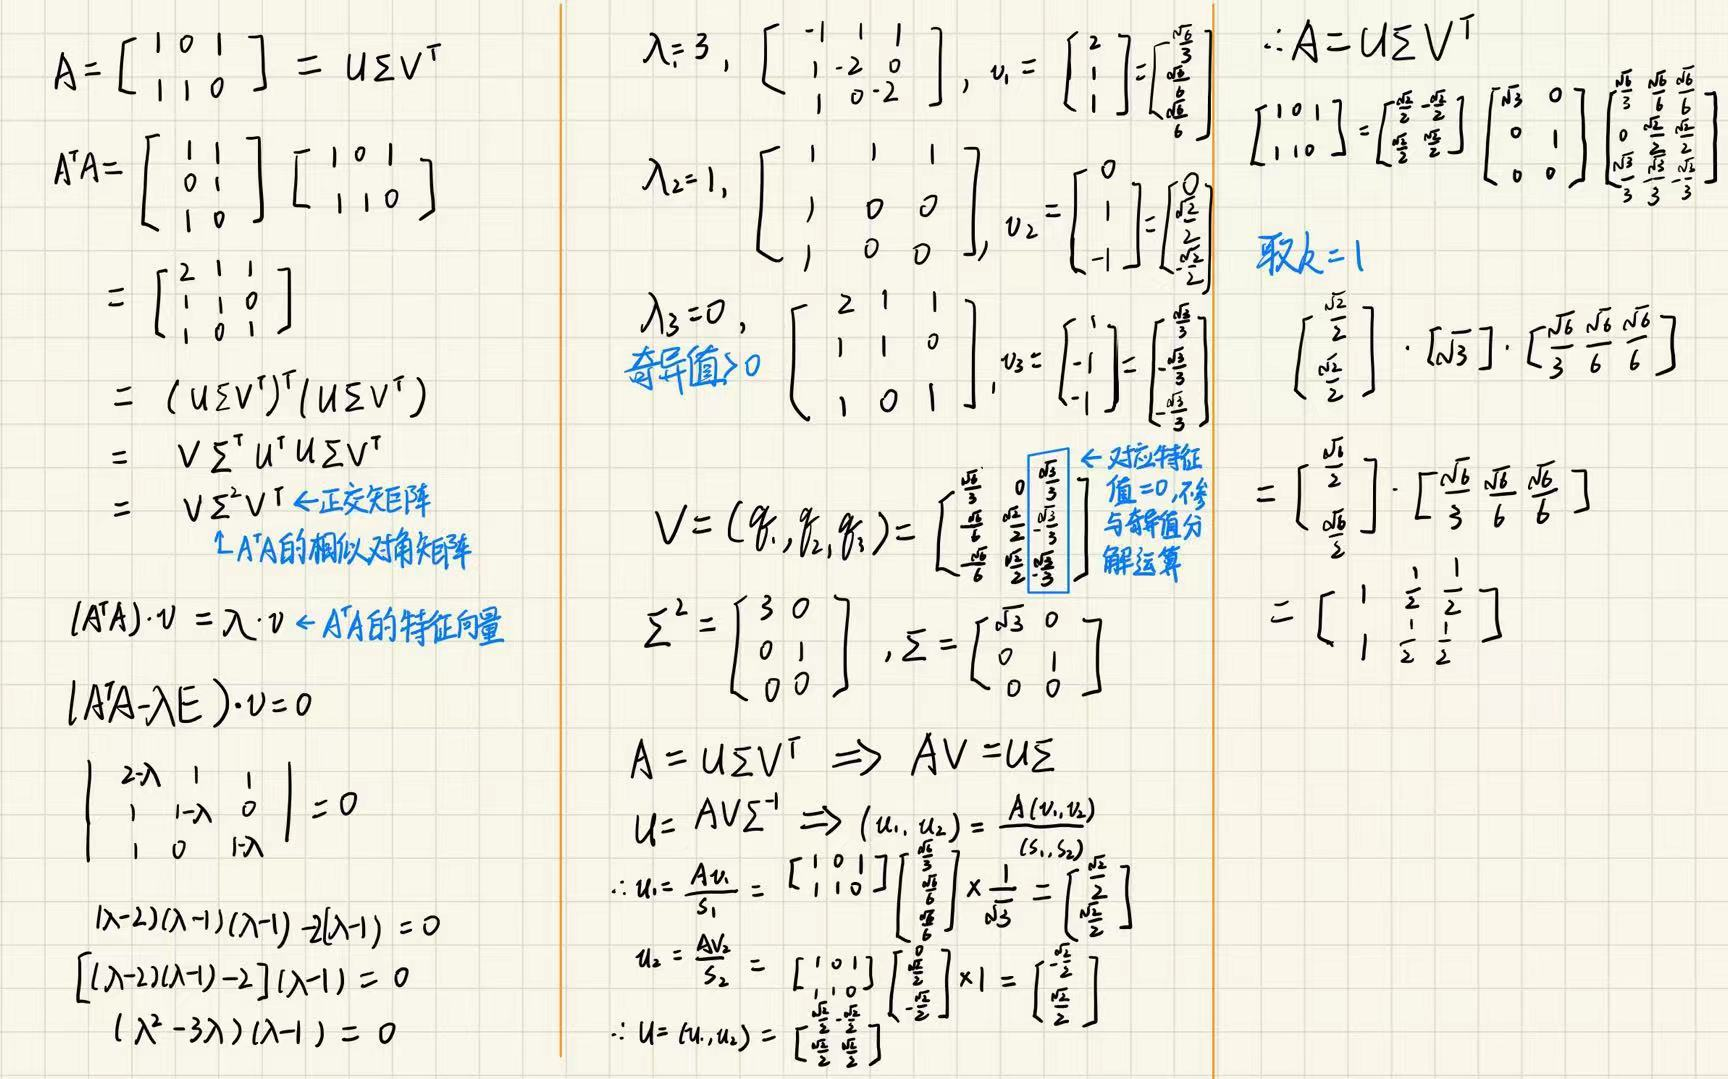 A = [1 0 1; 1 1 0] = UΣVᵀ
AᵀA = [1 1; 0 1; 1 0] [1 0 1; 1 1 0]
= [2 1 1; 1 1 0; 1 0 1]
= (UΣVᵀ)ᵀ(UΣVᵀ)
= VΣᵀUᵀUΣVᵀ
= VΣ²Vᵀ ←正交矩阵
↑AᵀA的相似对角矩阵
(AᵀA)·v = λ·v ← AᵀA的特征向量
(AᵀA-λE)·v=0
|2-λ 1 1; 1 1-λ 0; 1 0 1-λ| = 0
(λ-2)(λ-1)(λ-1)-2(λ-1) = 0
[(λ-2)(λ-1)-2](λ-1) = 0
(λ²-3λ)(λ-1) = 0
λ₁=3, [-1 1 1; 1 -2 0; 1 0 -2], v₁ = [2; 1; 1] = [√6/3; √6/6; √6/6]
λ₂=1, [1 1 1; 1 0 0; 1 0 0], v₂ = [0; 1; -1] = [0; √2/2; -√2/2]
λ₃=0, [2 1 1; 1 1 0; 1 0 1], v₃ = [1; -1; -1] = [√3/3; -√3/3; -√3/3]
奇异值>0
V = (q₁,q₂,q₃) = [√6/3 0 √3/3; √6/6 √2/2 -√3/3; √6/6 √2/2 -√3/3]
←对应特征
值=0,不参
与奇异值分
解运算
Σ² = [3 0; 0 1; 0 0], Σ = [√3 0; 0 1; 0 0]
A = UΣVᵀ ⟹ AV = UΣ
U = AVΣ⁻¹ ⟹ (u₁, u₂) = A(v₁,v₂)/(s₁,s₂)
∴ u₁ = Av₁/s₁ = [1 0 1; 1 1 0] [√6/3; √6/6; √6/6] × 1/√3 = [√2/2; √2/2]
u₂ = Av₂/s₂ = [1 0 1; 1 1 0] [0; √2/2; -√2/2] ×1 = [-√2/2; √2/2]
∴ U = (u₁,u₂) = [√2/2 -√2/2; √2/2 √2/2]
∴ A = UΣVᵀ
[1 0 1; 1 1 0] = [√2/2 -√2/2; √2/2 √2/2] [√3 0; 0 1; 0 0] [√6/3 √6/6 √6/6; 0 √2/2 √2/2; √3/3 -√3/3 -√3/3]
取k=1
[√2/2; √2/2] · [√3] · [√6/3 √6/6 √6/6]
= [√6/2; √6/2] · [√6/3 √6/6 √6/6]
= [1 1/2 1/2; 1 1/2 1/2]